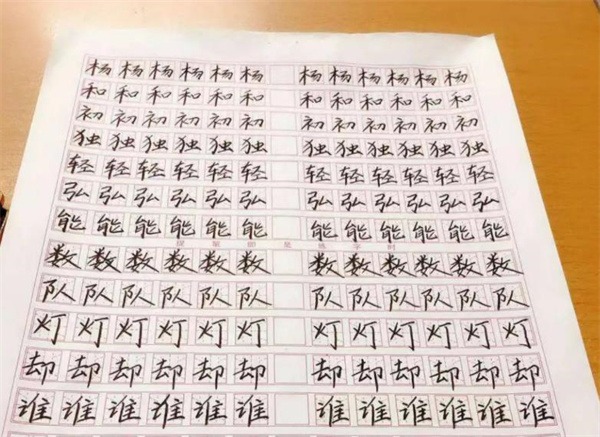 杨杨杨杨杨杨 杨杨杨杨杨杨
和和和和和和 和和和和和和
初初初初初初 初初初初初初
独独独独独独 独独独独独独
轻轻轻轻轻轻 轻轻轻轻轻轻
弘弘弘弘弘弘 弘弘弘弘弘弘
能能能能能能 能能能能能能
提笔即是练字时
数数数数数数 数数数数数数
队队队队队队 队队队队队队
灯灯灯灯灯灯 灯灯灯灯灯灯
却却却却却却 却却却却却却
谁谁谁谁谁谁 谁谁谁谁谁谁